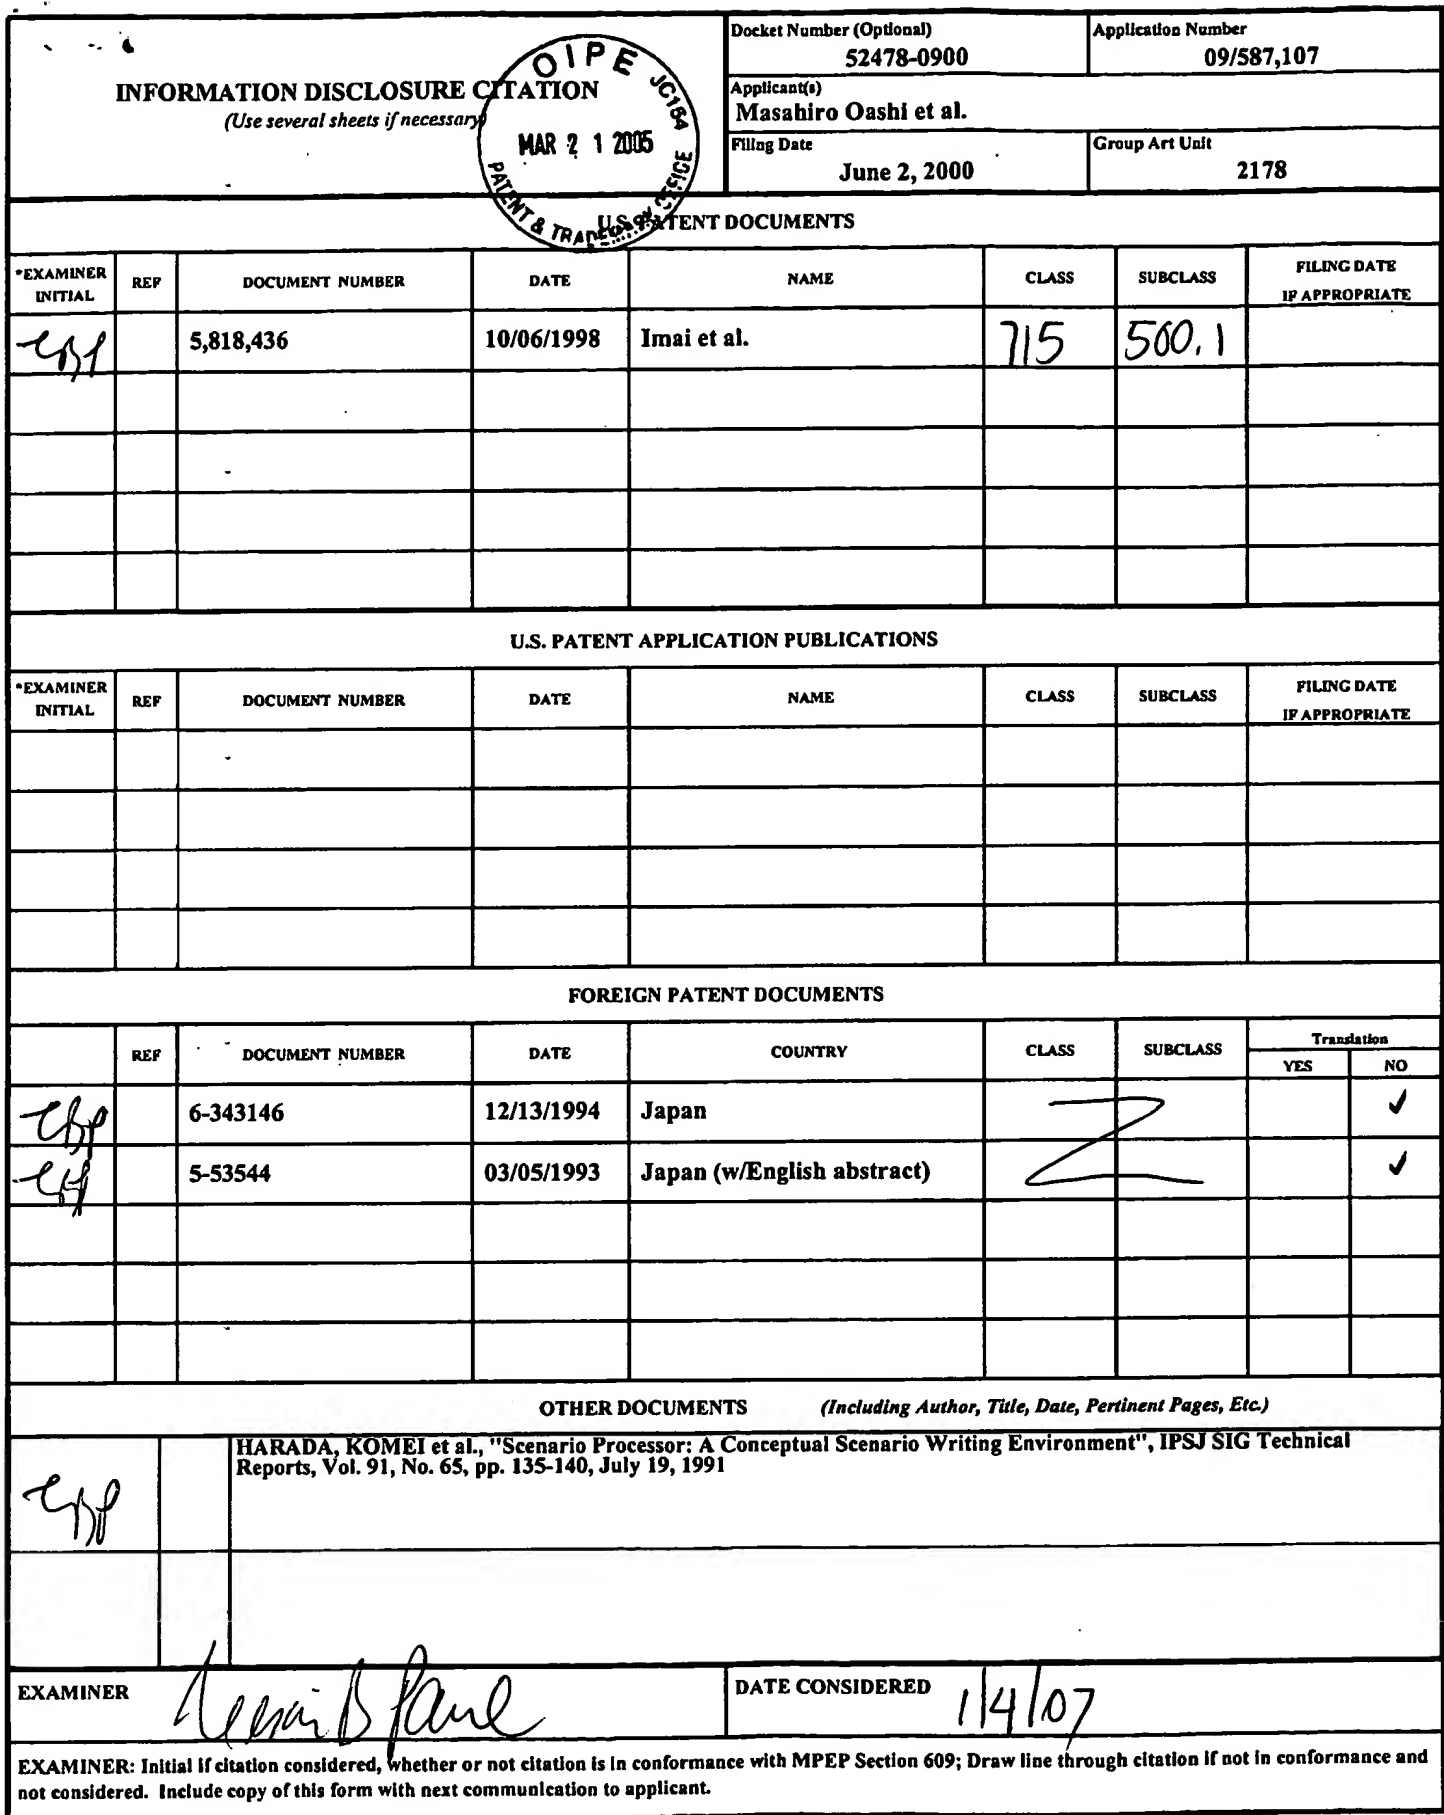 Docket Number (Optional)
52478-0900
Application Number
09/587,107
INFORMATION DISCLOSURE CITATION
(Use several sheets if necessary)
OIPE JC154
MAR 2 1 2005
PATENT & TRADEMARK OFFICE
Applicant(s)
Masahiro Oashi et al.
Filing Date
June 2, 2000
Group Art Unit
2178
U.S. PATENT DOCUMENTS
*EXAMINER INITIAL REF DOCUMENT NUMBER DATE NAME CLASS SUBCLASS FILING DATE IF APPROPRIATE
5,818,436 10/06/1998 Imai et al. 715 500.1
U.S. PATENT APPLICATION PUBLICATIONS
*EXAMINER INITIAL REF DOCUMENT NUMBER DATE NAME CLASS SUBCLASS FILING DATE IF APPROPRIATE
FOREIGN PATENT DOCUMENTS
REF DOCUMENT NUMBER DATE COUNTRY CLASS SUBCLASS Translation
YES NO
6-343146 12/13/1994 Japan ✓
5-53544 03/05/1993 Japan (w/English abstract) ✓
OTHER DOCUMENTS (Including Author, Title, Date, Pertinent Pages, Etc.)
HARADA, KOMEI et al., "Scenario Processor: A Conceptual Scenario Writing Environment", IPSJ SIG Technical
Reports, Vol. 91, No. 65, pp. 135-140, July 19, 1991
EXAMINER
DATE CONSIDERED 1/4/07
EXAMINER: Initial if citation considered, whether or not citation is in conformance with MPEP Section 609; Draw line through citation if not in conformance and
not considered. Include copy of this form with next communication to applicant.